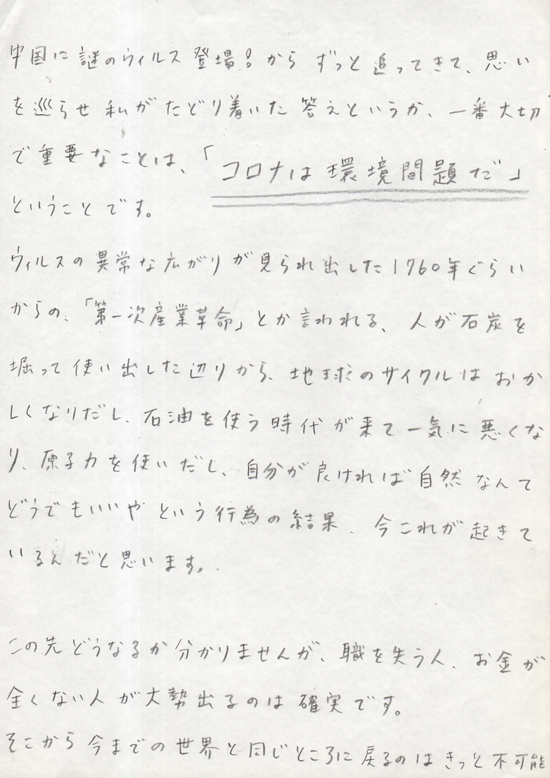 中国に謎のウィルス登場!からずっと追ってきて、思い
を巡らせ私がたどり着いた答えというか、一番大切
で重要なことは、「コロナは環境問題だ」
ということです。
ウィルスの異常な広がりが見られ出した1760年ぐらい
からの、「第一次産業革命」とか言われる、人が石炭を
堀って使い出した辺りから、地球のサイクルはおか
しくなりだし、石油を使う時代が来て一気に悪くな
り、原子力を使いだし、自分が良ければ自然なんて
どうでもいいやという行為の結果、今これが起きて
いるんだと思います。
この先どうなるか分かりませんが、職を失う人、お金が
全くない人が大勢出るのは確実です。
そこから今までの世界と同じところに戻るのはきっと不可能